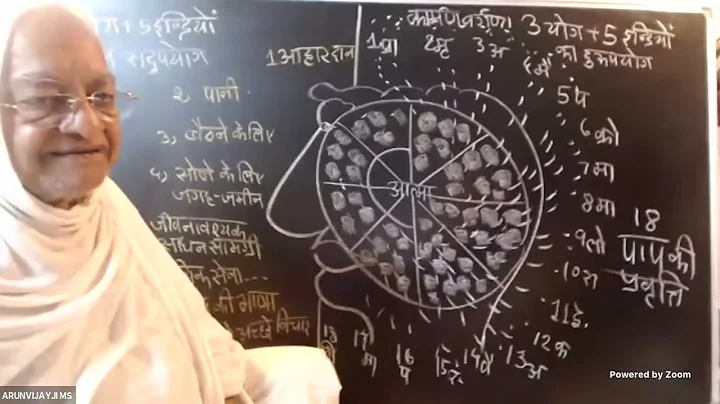 कार्मणवर्गणा
3 योग + 5 इन्द्रियों
का दुरुपयोग
+ 5 इन्द्रियों
सदुपयोग
1 आहारदान
2 पानी
3) बैठने के लिए
4) सोने के लिए
जगह-जमीन
जीवनावश्यक
साधन सामग्री
अच्छे विचार
आत्मा
1 प्रा
2 मृ
3 अ
4 मै
5 प
6 क्रो
7 मा
8 मा
9 लो
10 रा
11 द्वे.
12 क
13 अ
14 पै
15 र.
16 प
17
मा
18
18
पाप की
प्रवृत्ति
Powered by Zoom
ARUNVIJAYJI MS